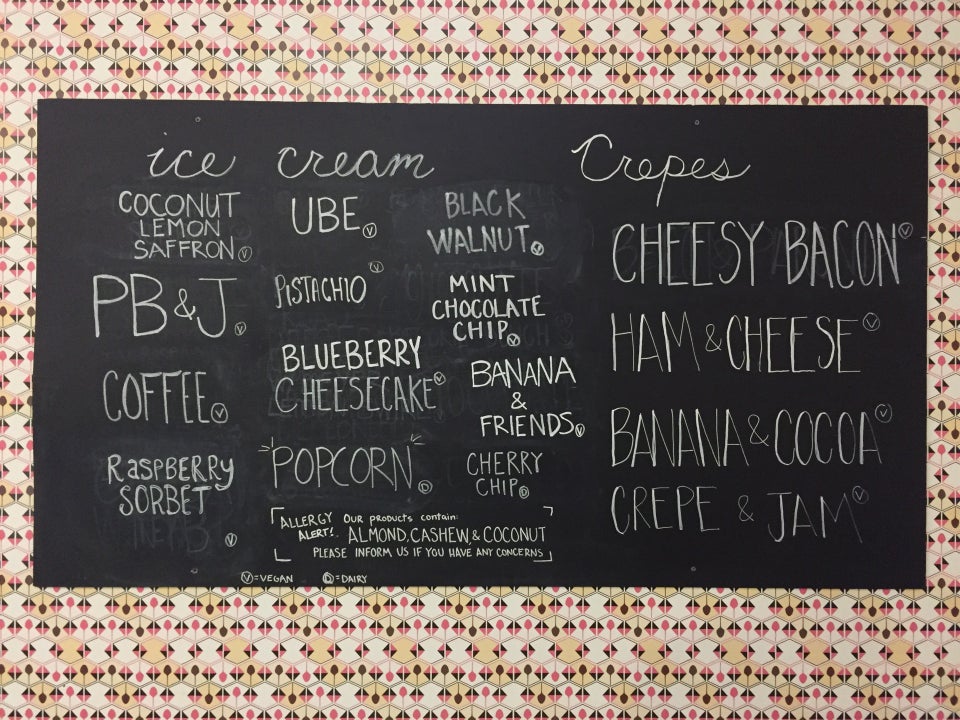 ice cream
COCONUT
LEMON
SAFFRON Ⓥ
PB & J Ⓥ
COFFEE Ⓥ
RASPBERRY
SORBET
Ⓥ
UBE Ⓥ
PISTACHIO Ⓥ
BLUEBERRY
CHEESECAKE Ⓥ
POPCORN Ⓓ
BLACK
WALNUT Ⓥ
MINT
CHOCOLATE
CHIP Ⓥ
BANANA
&
FRIENDS Ⓥ
CHERRY
CHIP Ⓓ
ALLERGY OUR PRODUCTS CONTAIN:
ALERT! ALMOND, CASHEW, & COCONUT
PLEASE INFORM US IF YOU HAVE ANY CONCERNS
Ⓥ=VEGAN Ⓓ=DAIRY
Crepes
CHEESY BACON Ⓥ
HAM & CHEESE Ⓥ
BANANA & COCOA Ⓥ
CREPE & JAM Ⓥ